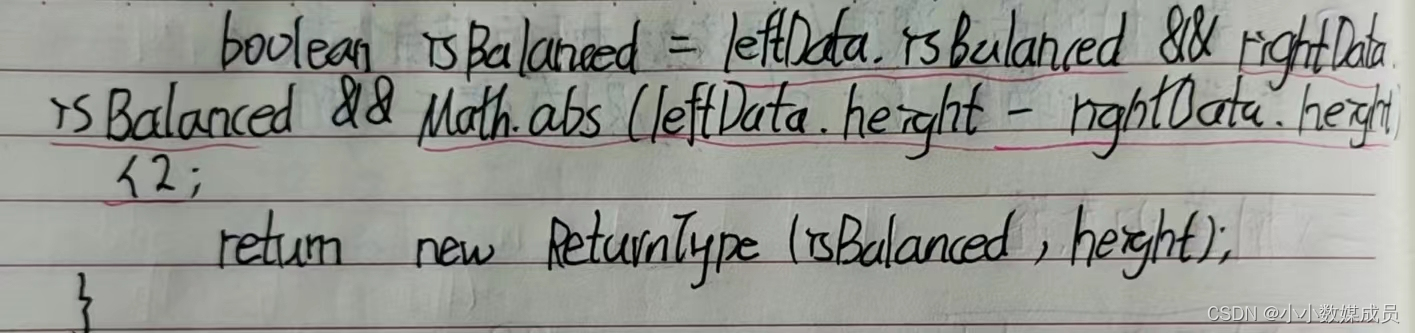 boolean isBalanced = leftData.isBalanced && rightData.
isBalanced && Math.abs (leftData.height - rightData.height)
<2;
return new ReturnType (isBalanced, height);
}
CSDN @小小数媒成员